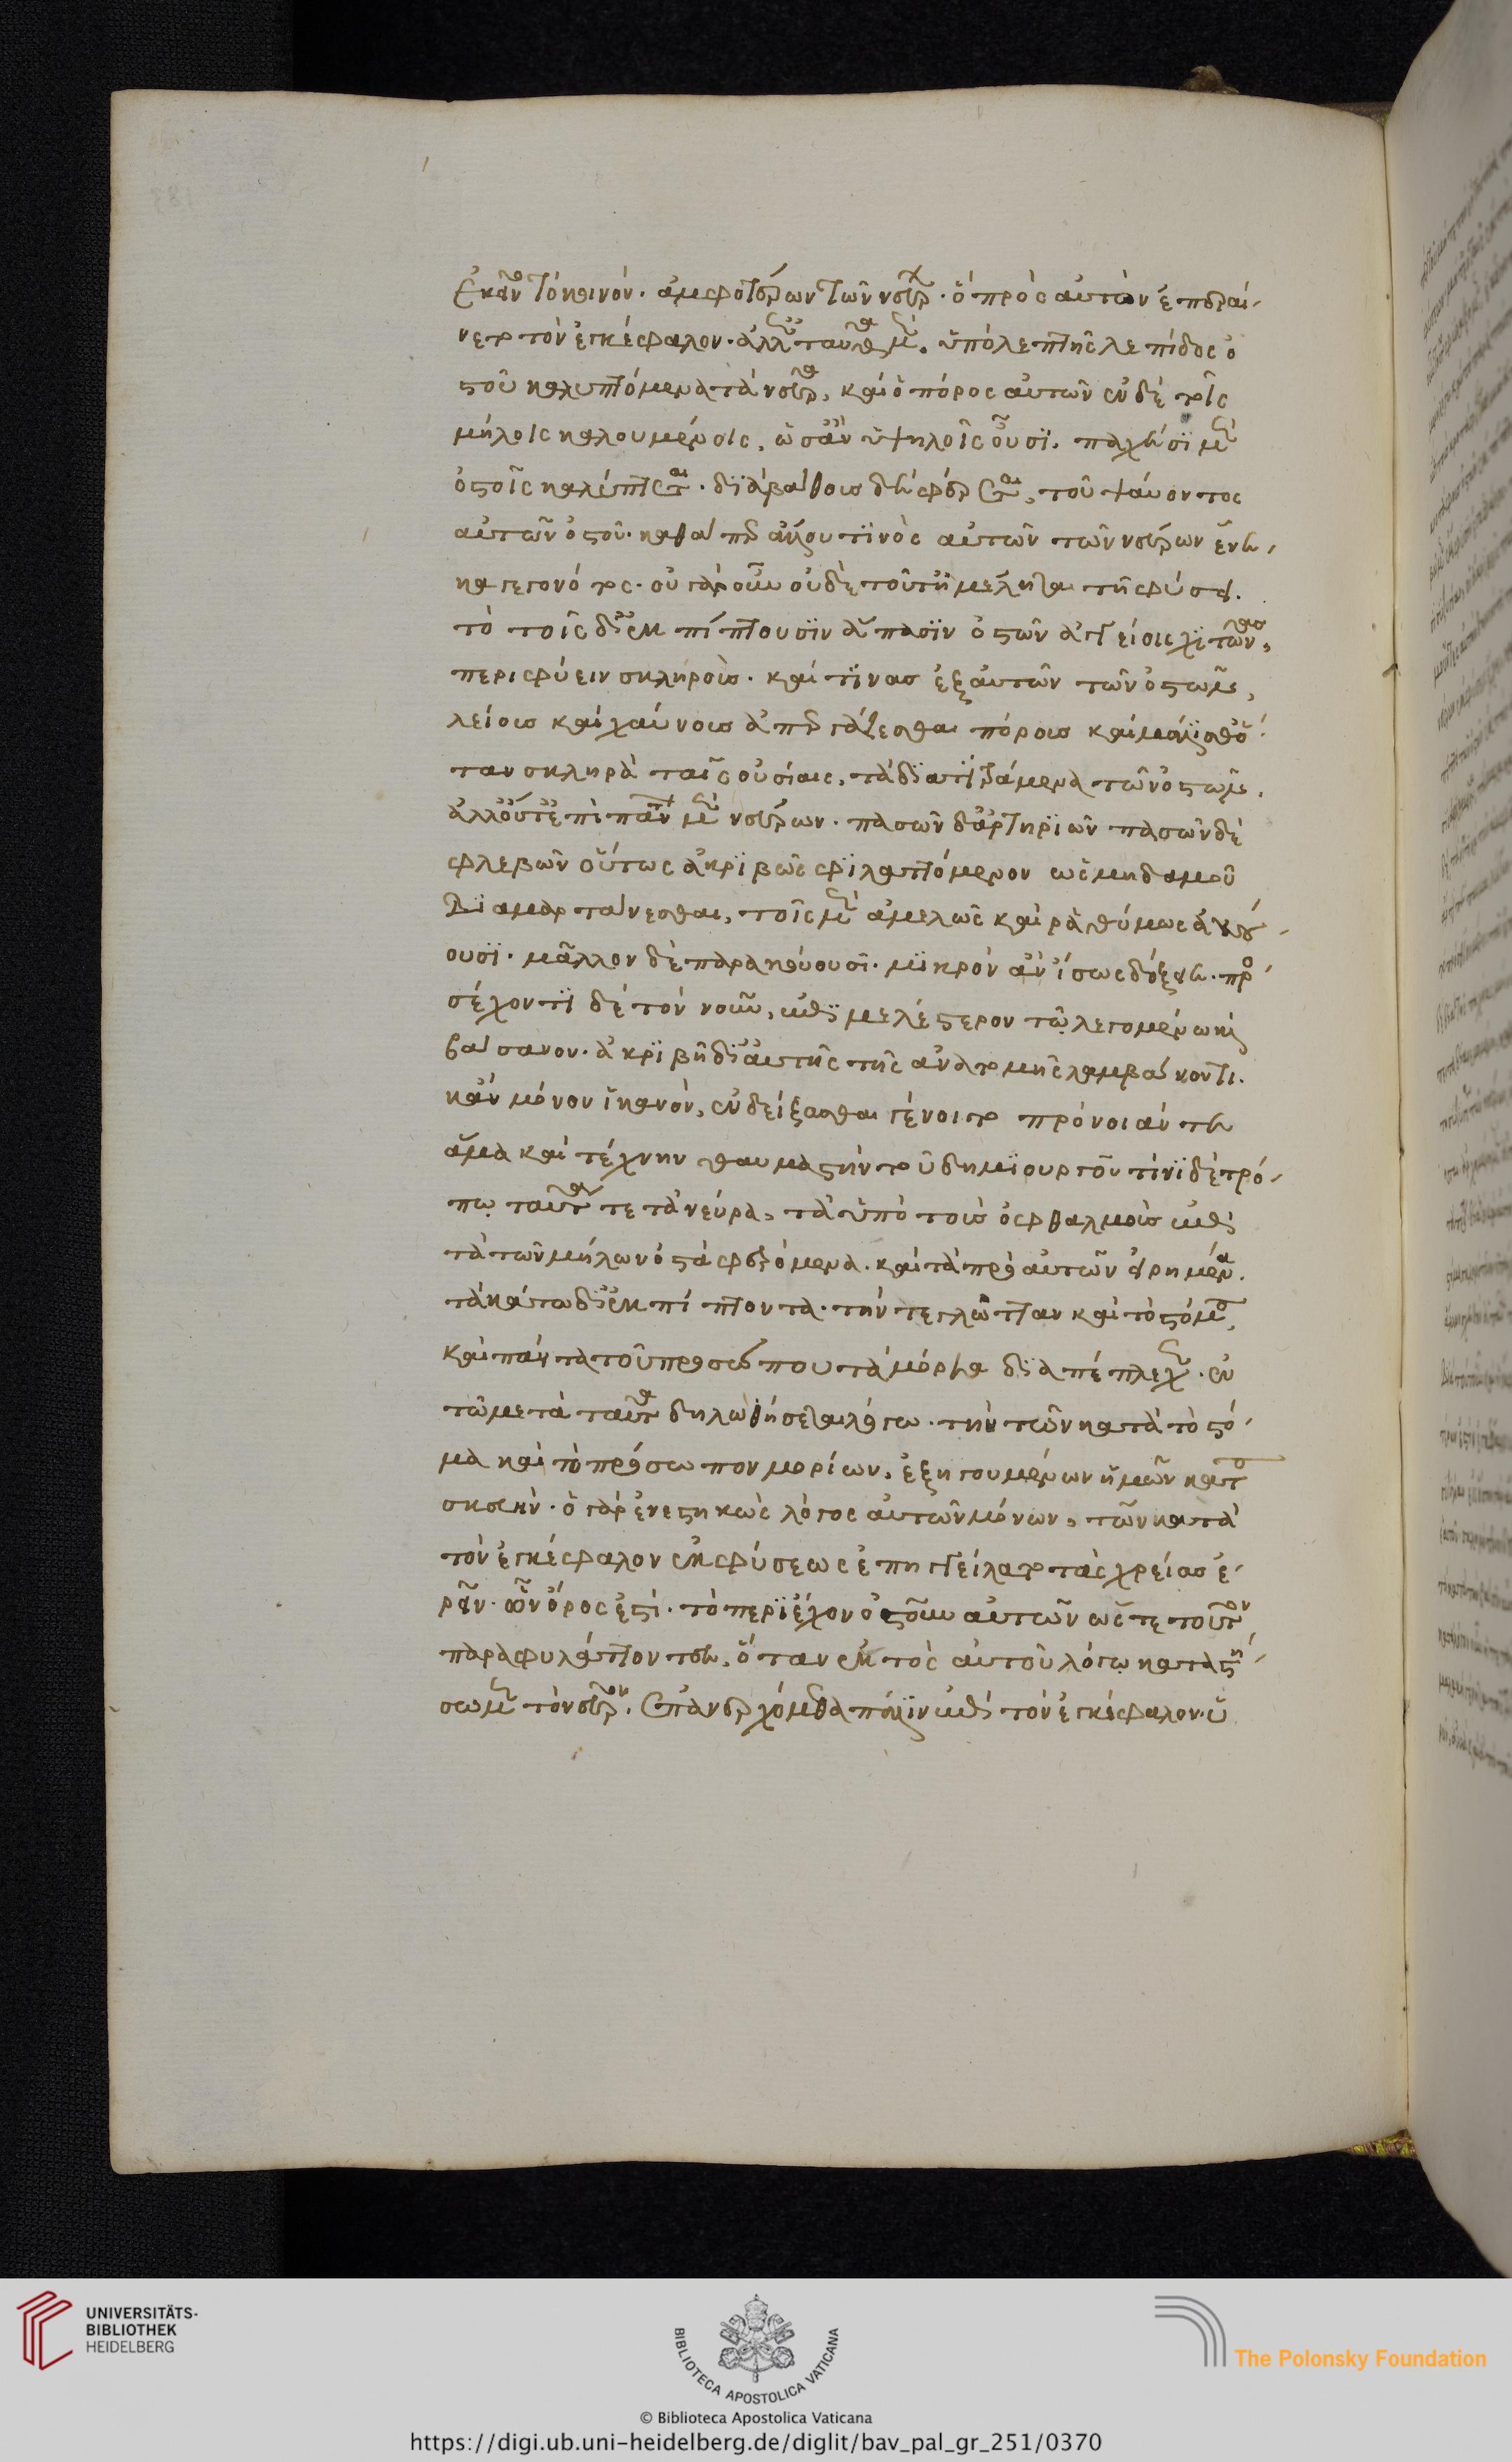 ἑκάτερον κοινὸν. ἀμφοτέρων τῶν νεύρων. ὃ πρὸς αὐτῶν ἐπεραί-
νετο τὸν ἐγκέφαλον. ἀλλὰ ταῦτα μὲν, ὑπὸ λεπτῆς λεπίδος ὀ-
στοῦ καλυπτόμενα τὰ νεῦρα, καὶ ὁ πόρος αὐτῶν ἐν δὲ τοῖς
μήλοις καλουμένοις, ὡς ἂν ὑψηλοῖς οὖσι. παχέσι μὲν
ὀστοῖς καλύπτεται. διαβάθοις δὲ φέρεται, τοῦ ψαύοντος
αὐτῶν ὀστοῦ. καθάπερ ἄλλου τινὸς αὐτῶν τῶν νεύρων ἕνε-
κα γεγονότος. οὐ γὰρ οὖν οὐδὲ τοῦτ' ἠμέληται τῇ φύσει.
τὸ τοῖς διεκπίπτουσιν ἅπασιν ὀστῶν ἀγγείοις χιτῶνας,
περιφύειν σκληροὺς. καί τινας ἐξ αὐτῶν τῶν ὀστῶν,
λείους καὶ χαύνους ἀπεργάζεσθαι πόρους καὶ μάλισθ' ὅ-
ταν σκληρὰ ταῖς οὐσίαις, τὰ διατιτράμενα τῶν ὀστῶν.
ἀλλὰ τοῦτ' ἐπὶ πάντων μὲν νεύρων. πασῶν δ' ἀρτηριῶν πασῶν δὲ
φλεβῶν οὕτως ἀκριβῶς φυλαττόμενον ὡς μηδαμοῦ
διαμαρτάνεσθαι, τοῖς μὲν ἀμελῶς καὶ ῥαθύμως ἀκού-
ουσι. μᾶλλον δὲ παρακούουσι. μικρὸν ἂν ἴσως δόξει. προ-
σέχοντι δὲ τὸν νοῦν, καὶ ἐπιμελέστερον τῷ λεγομένῳ καὶ
βάσανον. ἀκριβῆ δι' αὐτῆς τῆς ἀνατομῆς λαμβάνοντι.
κἂν μόνον ἱκανὸν, ἐνδείξασθαι γένοιτο πρόνοιάν τε
ἅμα καὶ τέχνην θαυμαστὴν τοῦ δημιουργοῦ τίνι δὲ τρό-
πῳ ταῦτά τε τὰ νεῦρα, τὰ ὑπὸ τοῖς ὀφθαλμοῖς καὶ
τὰ τῶν μήλων ὀστᾶ φερόμενα. καὶ τὰ πρὸ αὐτῶν εἰρημένα.
τὰ κάτω διεκπίπτοντα. τήν τε γλῶτταν καὶ τὸ στόμα,
καὶ πάντα τοῦ προσώπου τὰ μόρια διαπέπλεκται. ἐν
τῷ μετὰ ταῦτα δηλωθήσεται λόγῳ. τὴν τῶν κατὰ τὸ στό-
μα καὶ τὸ πρόσωπον μορίων, ἐξηγουμένων ἡμῶν κατα-
σκευὴν. ὁ γὰρ ἐνεστηκὼς λόγος αὐτῶν μόνων, τῶν κατὰ
τὸν ἐγκέφαλον ἐκφύσεως ἐπηγγείλατο τὰς χρείας ἐ-
ρεῖν. ὧν ὅρος ἐστὶ. τὸ περιέχον ὀστοῦν αὐτῶν ὥστε τοῦτον
παραφυλάττοντες. ὅταν ἐκτὸς αὐτοῦ λόγῳ καταστή-
σωμεν τὸ νεῦρον. ἐπανερχόμεθα πάλιν ἐπὶ τὸν ἐγκέφαλον. ὑ
UNIVERSITÄTS-
BIBLIOTHEK
HEIDELBERG
BIBLIOTECA APOSTOLICA VATICANA
The Polonsky Foundation
© Biblioteca Apostolica Vaticana
https://digi.ub.uni-heidelberg.de/diglit/bav_pal_gr_251/0370